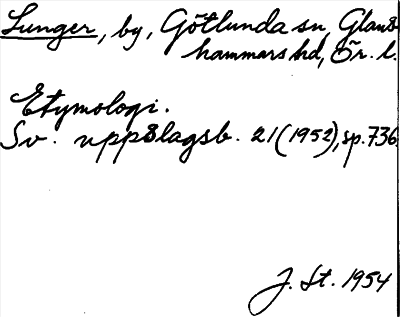 Lunger, by, Götlunda sn, Glans-
hammars hd, Ör. l.
Etymologi.
Sv. uppslagsb. 21 (1952), sp. 736.
J. St. 1954